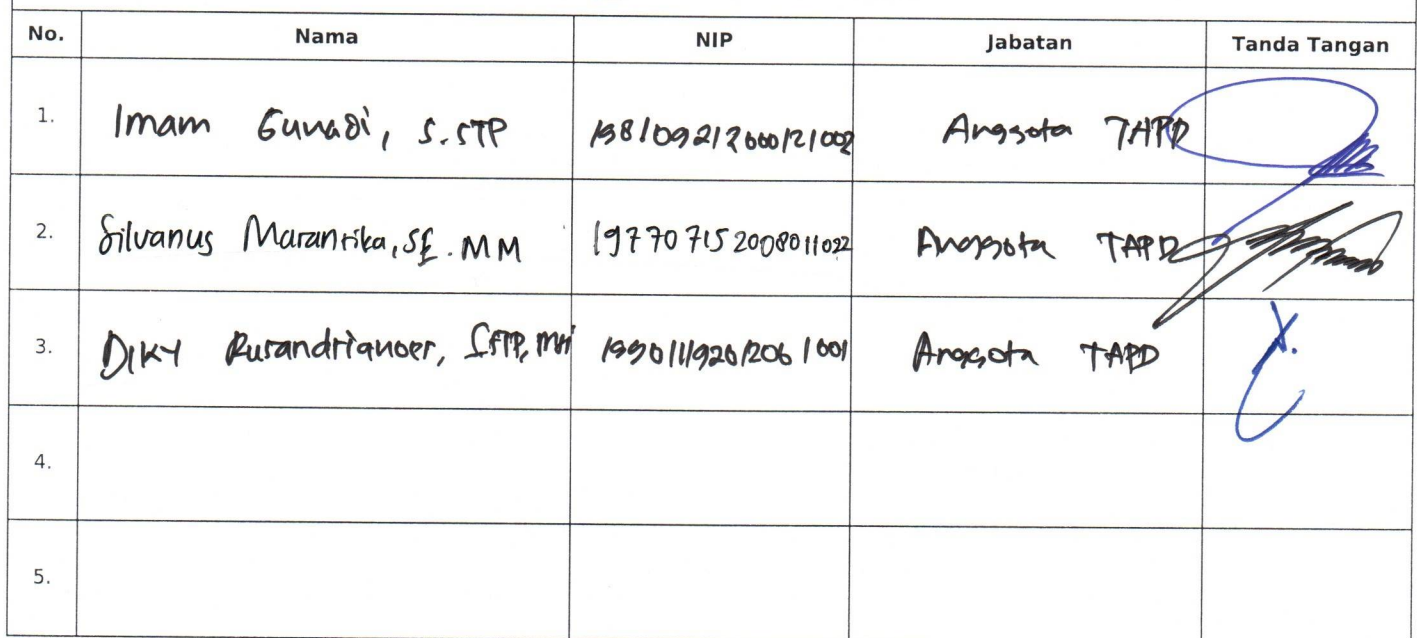 No. Nama NIP Jabatan Tanda Tangan
1. Imam Gunadi, S.STP 198109212000121002 Anggota TAPD
2. Silvanus Marantika, SE. MM 197707152008011022 Anggota TAPD
3. DIKY Rusandrianoer, S.STP, 199011192012061001 Anggota TAPD
4.
5.